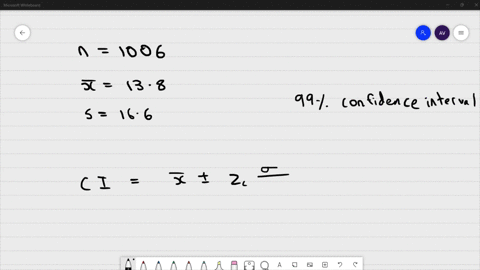 Microsoft Whiteboard
AV
n = 1006
x̄ = 13.8
99% confidence interval
s = 16.6
CI = x̄ ± Zc σ